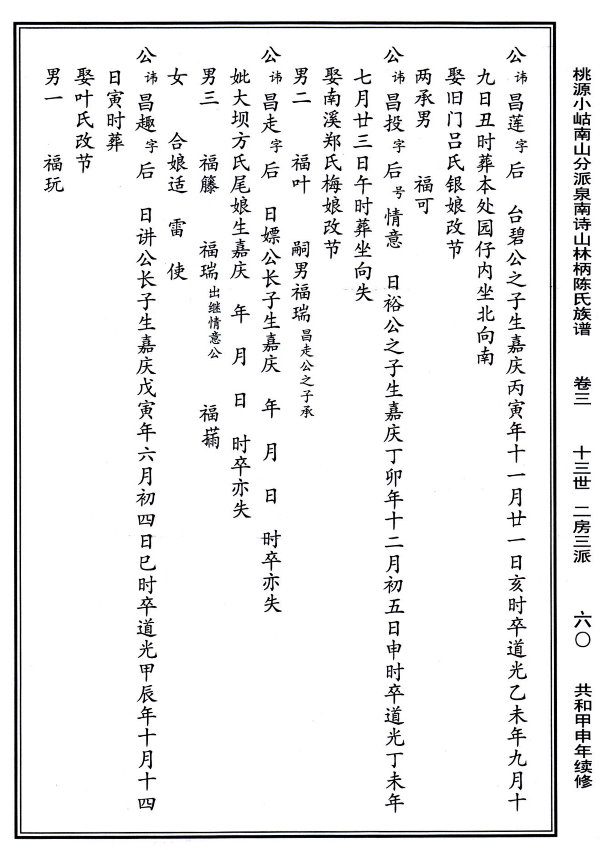 桃源小岵南山分派泉南诗山林柄陈氏族谱 卷三 十三世 二房三派 六〇 共和甲申年续修
公讳昌莲字 后 台碧公之子生嘉庆丙寅年十一月廿一日亥时卒道光乙未年九月十
九日丑时葬本处园仔内坐北向南
娶旧门吕氏银娘改节
两承男 福可
公讳昌投字 后号情意 日裕公之子生嘉庆丁卯年十二月初五日申时卒道光丁未年
七月廿三日午时葬坐向失
娶南溪郑氏梅娘改节
男二 福叶 嗣男福瑞昌走公之子承
公讳昌走字 后 日嫖公长子生嘉庆 年 月 日 时卒亦失
妣大坝方氏尾娘生嘉庆 年 月 日 时卒亦失
男三 福籐 福瑞出继情意公 福
女 合娘适 雷 使
公讳昌趣字 后 日讲公长子生嘉庆戊寅年六月初四日巳时卒道光甲辰年十月十四
日寅时葬
娶叶氏改节
男一 福玩